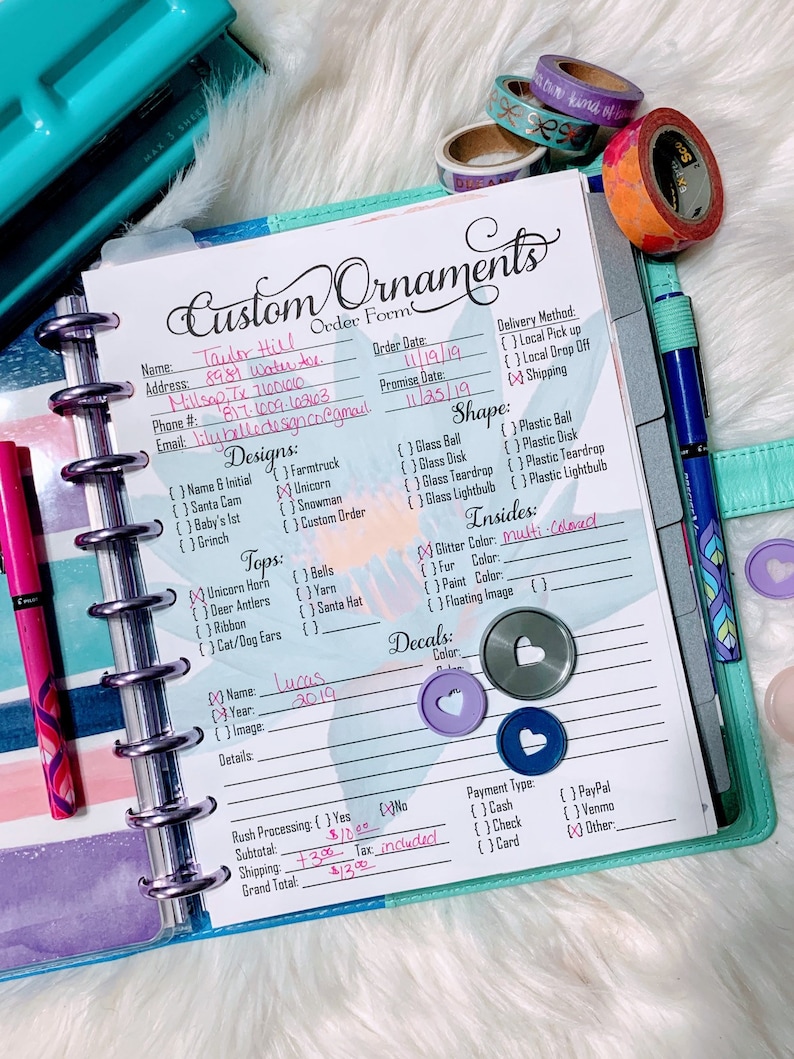 MAX 3 SHEE
own kind of
DREAM
Custom Ornaments
Order Form
Name: Taylor Hill
Address: 8989 Water Ave.
Millsap, Tx 76066
Phone #: 817-609-6263
Email: lilybelledesignco@gmail.
Order Date:
11/19/19
Promise Date:
11/25/19
Delivery Method:
{ } Local Pick up
{ } Local Drop Off
{X} Shipping
Designs:
{ } Name & Initial
{ } Santa Cam
{ } Baby's 1st
{ } Grinch
{ } Farmtruck
{X} Unicorn
{ } Snowman
{ } Custom Order
Shape:
{ } Glass Ball
{ } Glass Disk
{ } Glass Teardrop
{ } Glass Lightbulb
{ } Plastic Ball
{ } Plastic Disk
{ } Plastic Teardrop
{ } Plastic Lightbulb
Tops:
{X} Unicorn Horn
{ } Deer Antlers
{ } Ribbon
{ } Cat/Dog Ears
{ } Bells
{ } Yarn
{ } Santa Hat
{ }
Insides:
{X} Glitter Color: multi-colored
{ } Fur Color:
{ } Paint Color:
{ } Floating Image { }
Decals:
{X} Name: Lucas Color:
{X} Year: 2019
{ } Image:
Details:
Rush Processing: { } Yes {X} No
Subtotal: $10.00
Shipping: +3.00 Tax: included
Grand Total: $13.00
Payment Type:
{ } Cash
{ } Check
{ } Card
{ } PayPal
{ } Venmo
{X} Other:
PILOT